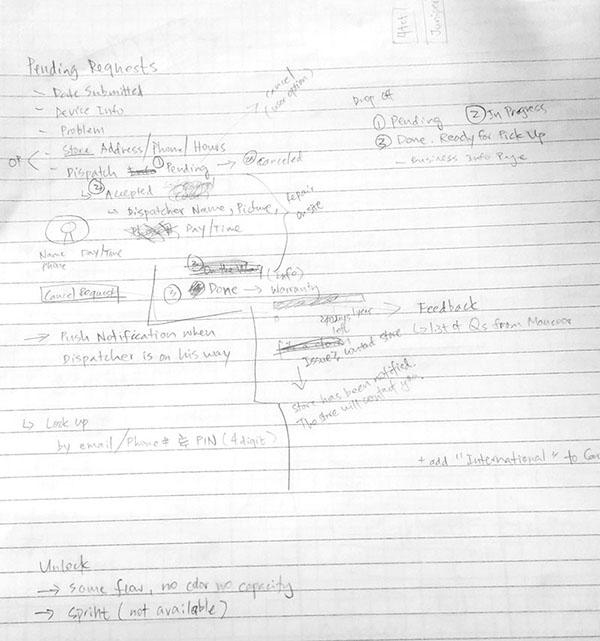 Pending Requests
- Date Submitted
- Device Info
- Problem
- Store Address/Phone/Hours
OR
- Dispatch ① Pending → ④ Canceled
→ cancel
(user option)
↳ ② Accepted
- Dispatcher Name, Picture,
Day/Time
repair
onsite
Name Day/Time
Phone
Cancel Request
③ On the Way (info)
③ Done → Warranty
1 year
0
240 days
left
Issue? contact store
↓
Store has been notified.
The store will contact you.
→ Feedback
↳ list of Qs from
→ Push Notification when
Dispatcher is on his way
Drop off
① Pending ② In Progress
③ Done. Ready for Pick Up
- Business Info Page
↳ Look up
by email/Phone # & PIN (4 digit)
+ add "International" to
Unlock
→ same flow, no color no capacity
→ Sprint (not available)